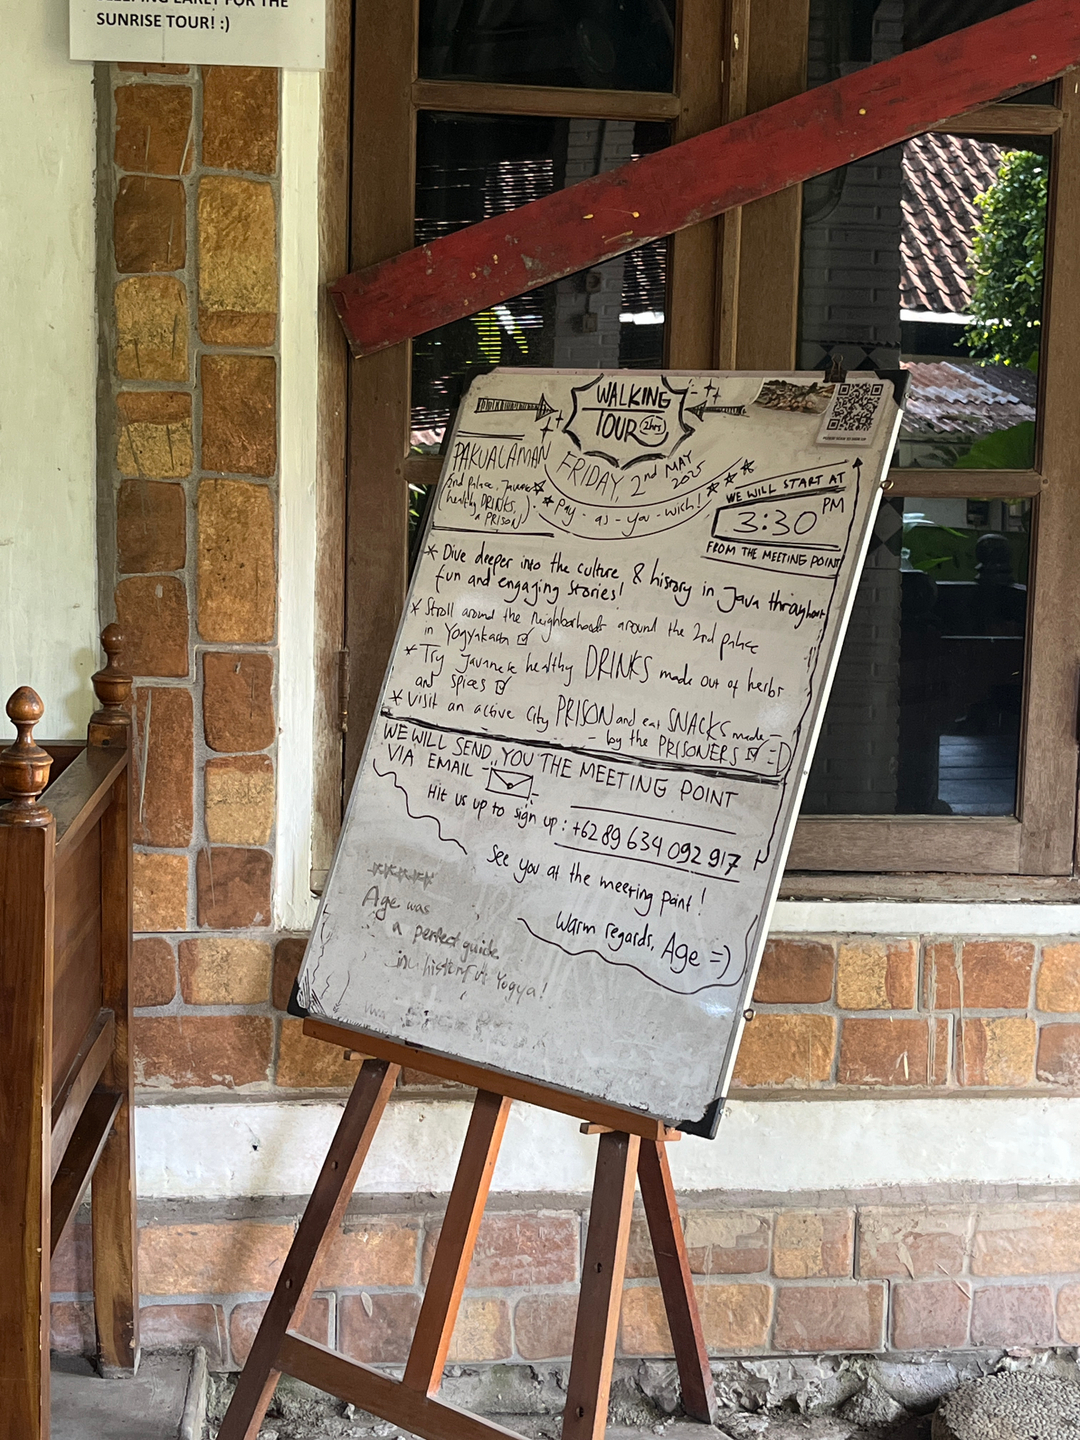 SUNRISE TOUR! :)
WALKING
TOUR 2hrs
PAKUALAMAN
2nd palace, Javanese
(healthy DRINKS,
a PRISON)
FRIDAY, 2nd MAY
2025
Pay-as-you-wish!
WE WILL START AT
3:30 PM
FROM THE MEETING POINT
* Dive deeper into the culture & history in Java throughout
fun and engaging stories!
* Stroll around the neighborhoods around the 2nd palace
in Yogyakarta
* Try Javanese healthy DRINKS made out of herbs
and spices
* Visit an active city PRISON and eat SNACKS made-
- by the PRISONERS =D
WE WILL SEND YOU THE MEETING POINT
VIA EMAIL
Hit us up to sign up: +62 89 634 092 917
See you at the meeting point!
Warm regards, Age =)
Age was
a perfect guide
in history
Yogya!